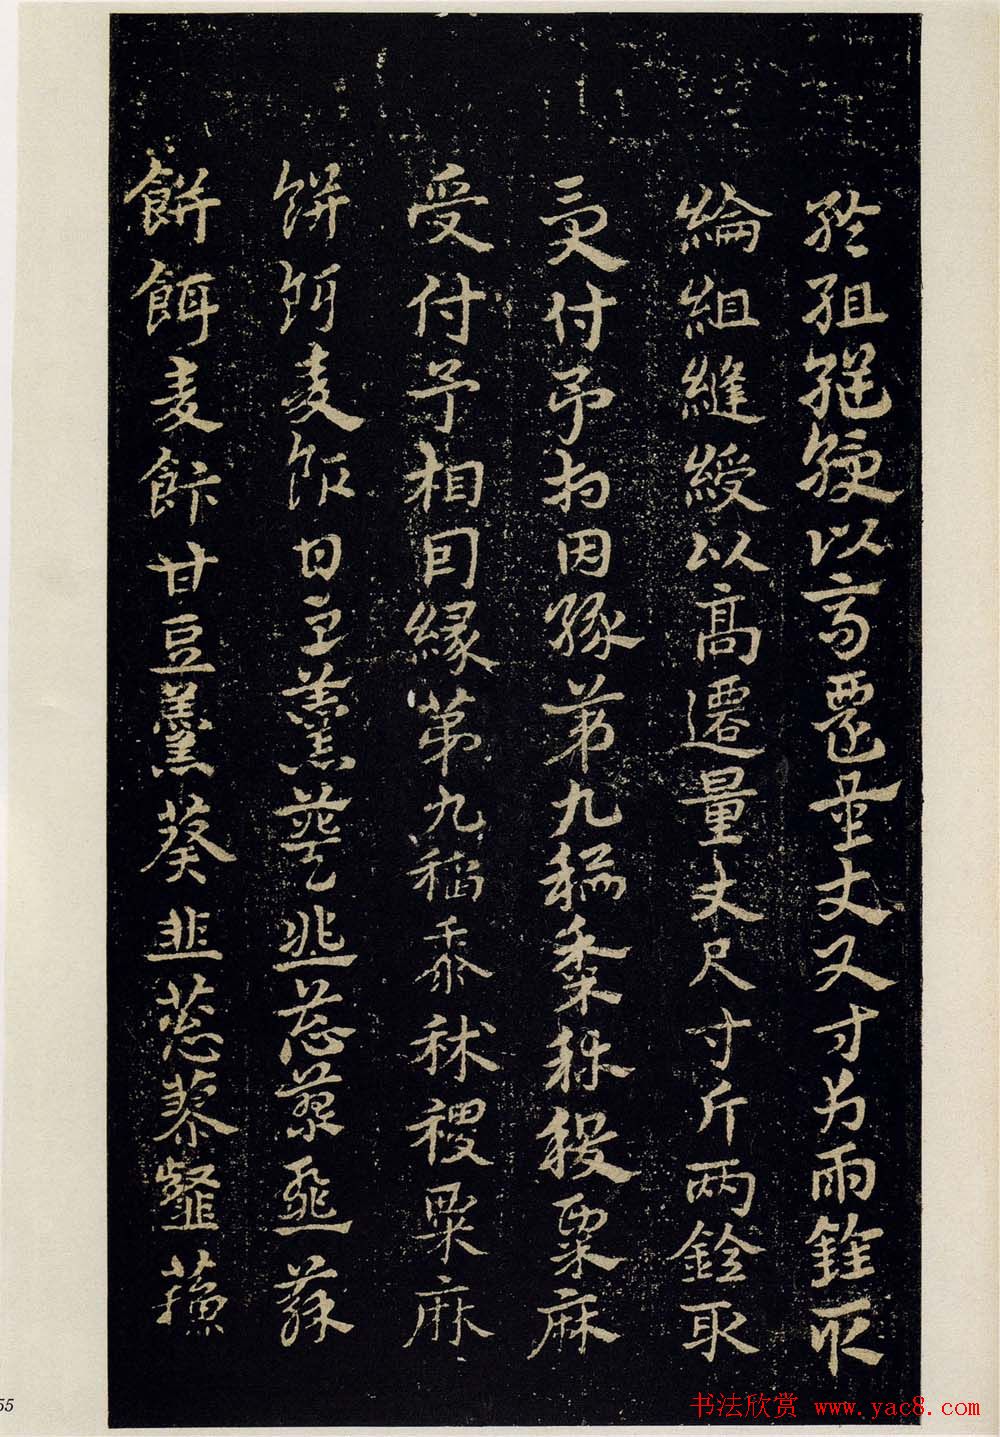 綸組縌綬以高遷量丈尺寸斤兩銓取
綸組縫綬以高遷量丈尺寸斤兩銓取
受付予相因緣第九稻黍秫稷粟麻
受付予相因緣第九稻黍秫稷粟麻
餅餌麥飯甘豆羹葵韭葱蓼韰蘇
餅餌麦飰甘豆羹葵韭葱蓼韰蘇
55
书法欣赏 www.yac8.com